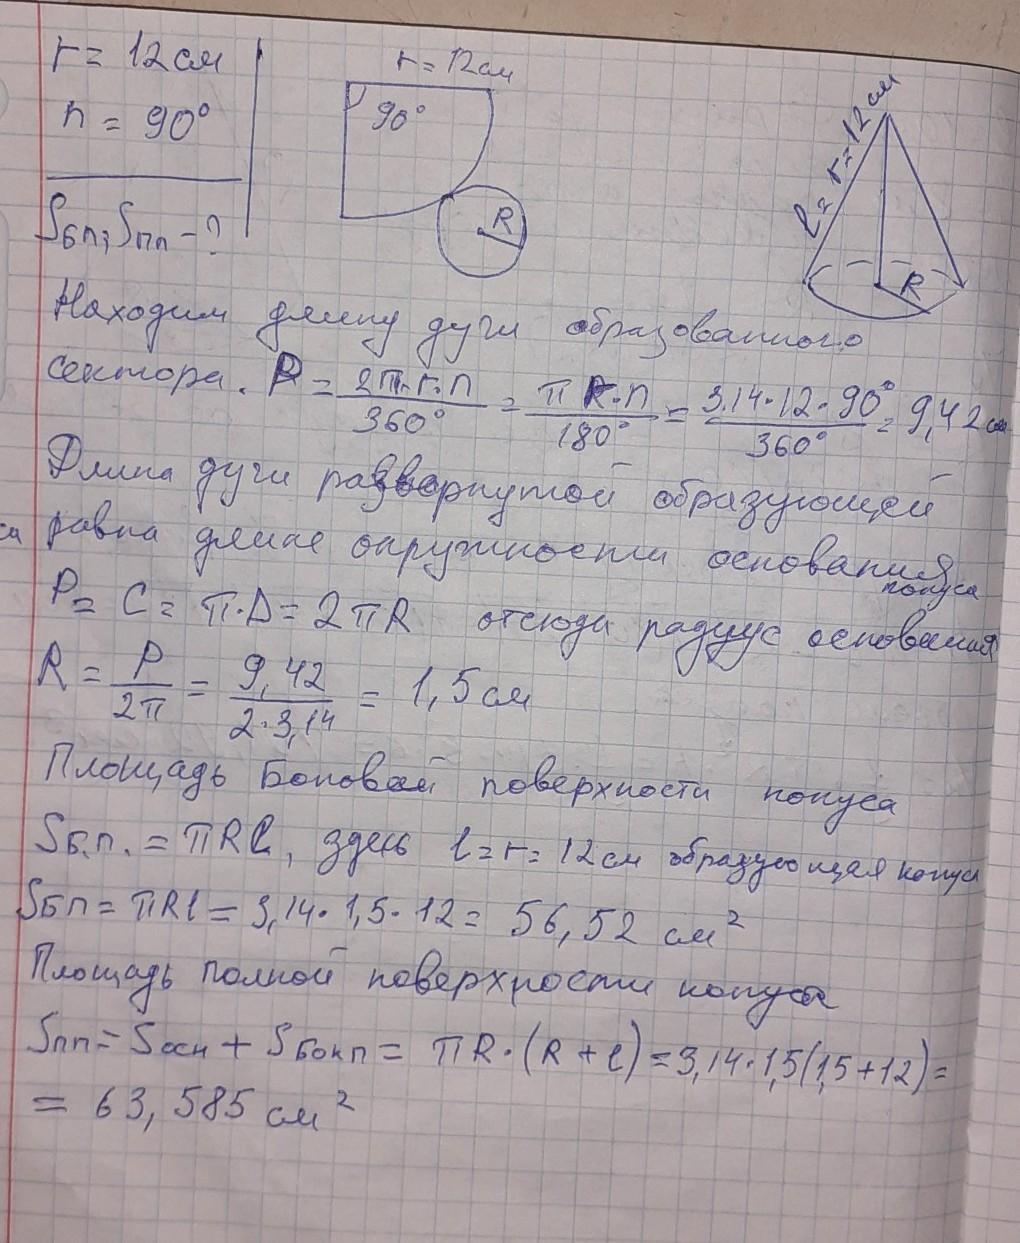 r = 12 см
n = 90°
Sбп; Sпп - ?
r = 12 см
90°
R
l = r = 12 см
R
Находим длину дуги образованного
сектора. P = 2π·r·n / 360° = πR·n / 180° = 3,14·12·90° / 360° = 9,42 см
Длина дуги развернутой образующей
равна длине окружности основания конуса
P = C = π·D = 2πR отсюда радиус основания
R = P / 2π = 9,42 / 2·3,14 = 1,5 см
Площадь Боковой поверхности конуса
Sб.п. = πRl, здесь l = r = 12 см образующая конуса
Sбп = πRl = 3,14·1,5·12 = 56,52 см²
Площадь полной поверхности конуса
Sпп = Sосн + Sбокп = πR·(R + l) = 3,14·1,5(1,5+12) =
= 63,585 см²